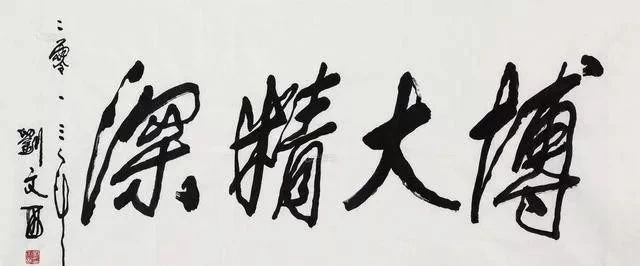 博大精深
二零一三年
劉文西